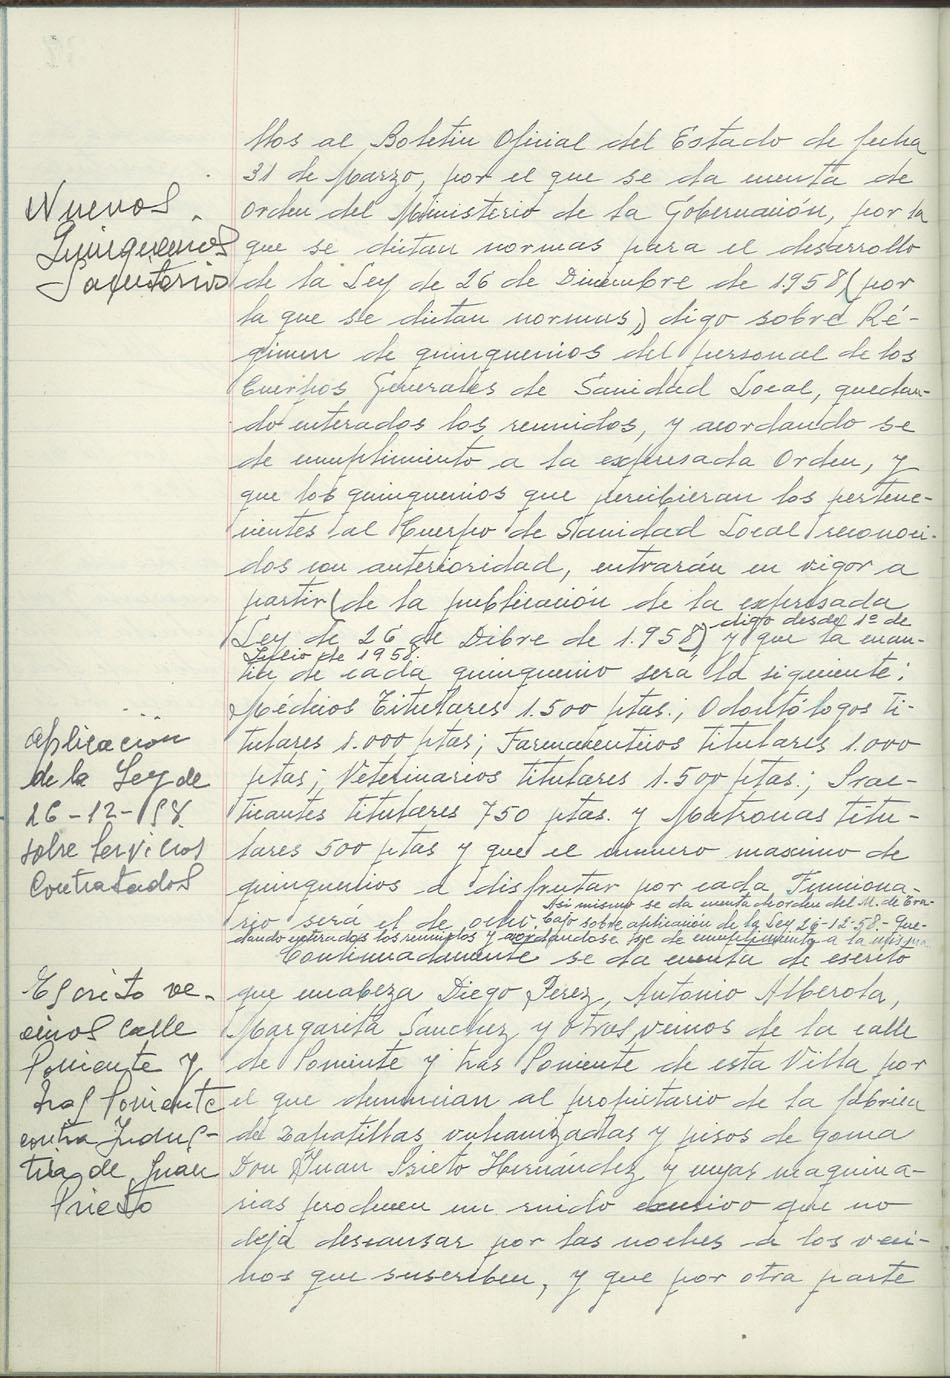 llos al Boletin Oficial del Estado de fecha
31 de Marzo, por el que se da cuenta de
Orden del Ministerio de la Gobernación, por la
que se dictan normas para el desarrollo
de la Ley de 26 de Diciembre de 1958 (por
la que se dictan normas) digo sobre Ré-
gimen de quinquenios del personal de los
Cuerpos Generales de Sanidad Local, quedan-
do enterados los reunidos, y acordando se
de cumplimiento a la expresada Orden, y
que los quinquenios que percibieran los pertene-
cientes al Cuerpo de Sanidad Local reconoci-
dos con anterioridad, entrarán en vigor a
partir (de la publicación de la expresada
Ley de 26 de Dibre de 1.958) digo desde 1º de
Julio de 1958. y que la cuan-
tia de cada quinquenio será la siguiente:
Médicos Titulares 1.500 ptas.; Odontólogos Ti-
tulares 1.000 ptas; Farmaceuticos titulares 1.000
ptas; Veterinarios titulares 1.500 ptas.; Prac-
ticantes titulares 750 ptas. y Matronas Titu-
lares 500 ptas y que el numero maximo de
quinquenios a disfrutar por cada Funciona-
rio será el de ocho. Asi mismo se da cuenta de orden del M. de Tra-
bajo sobre aplicación de la Ley 26-12-58.- Que-
dando enterados los reunidos y acordandose se de cumplimiento a la misma.
Continuadamente se da cuenta de escrito
que encabeza Diego Perez, Antonio Alberola,
Margarita Sanchez y otros vecinos de la calle
de Poniente y tras Poniente de esta Villa por
el que denuncian al propietario de la fábrica
de Zapatillas vulcanizadas y pisos de goma
Don Juan Prieto Hernández y cuyas maquina-
rias producen un ruido excesivo que no
deja descansar por las noches a los veci-
nos que suscriben, y que por otra parte
Nuevos
Quinquenios
Sanitarios
Aplicación
de la Ley de
26-12-58
sobre Servicios
Contratados
Escrito ve-
cinos calle
Poniente y
tras Poniente
contra Indus-
tria de Juan
Prieto